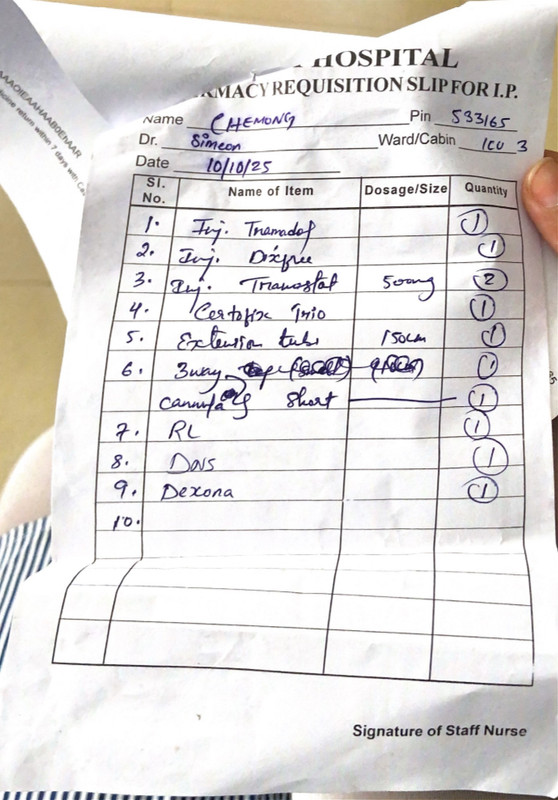 HOSPITAL
RMACY REQUISITION SLIP FOR I.P.
Name CHEMONG Pin 533165
Dr. Simeon Ward/Cabin ICU 3
Date 10/10/25
Sl. No. Name of Item Dosage/Size Quantity
1. Inj. Tramadol 1
2. Inj. Dixfree 1
3. Inj. Tramostat 500mg 2
4. Certofix Trio 1
5. Extension tube 150cm 1
6. 3way 1
cannula Short 1
7. RL 1
8. DNS 1
9. Dexona 1
10.
Signature of Staff Nurse